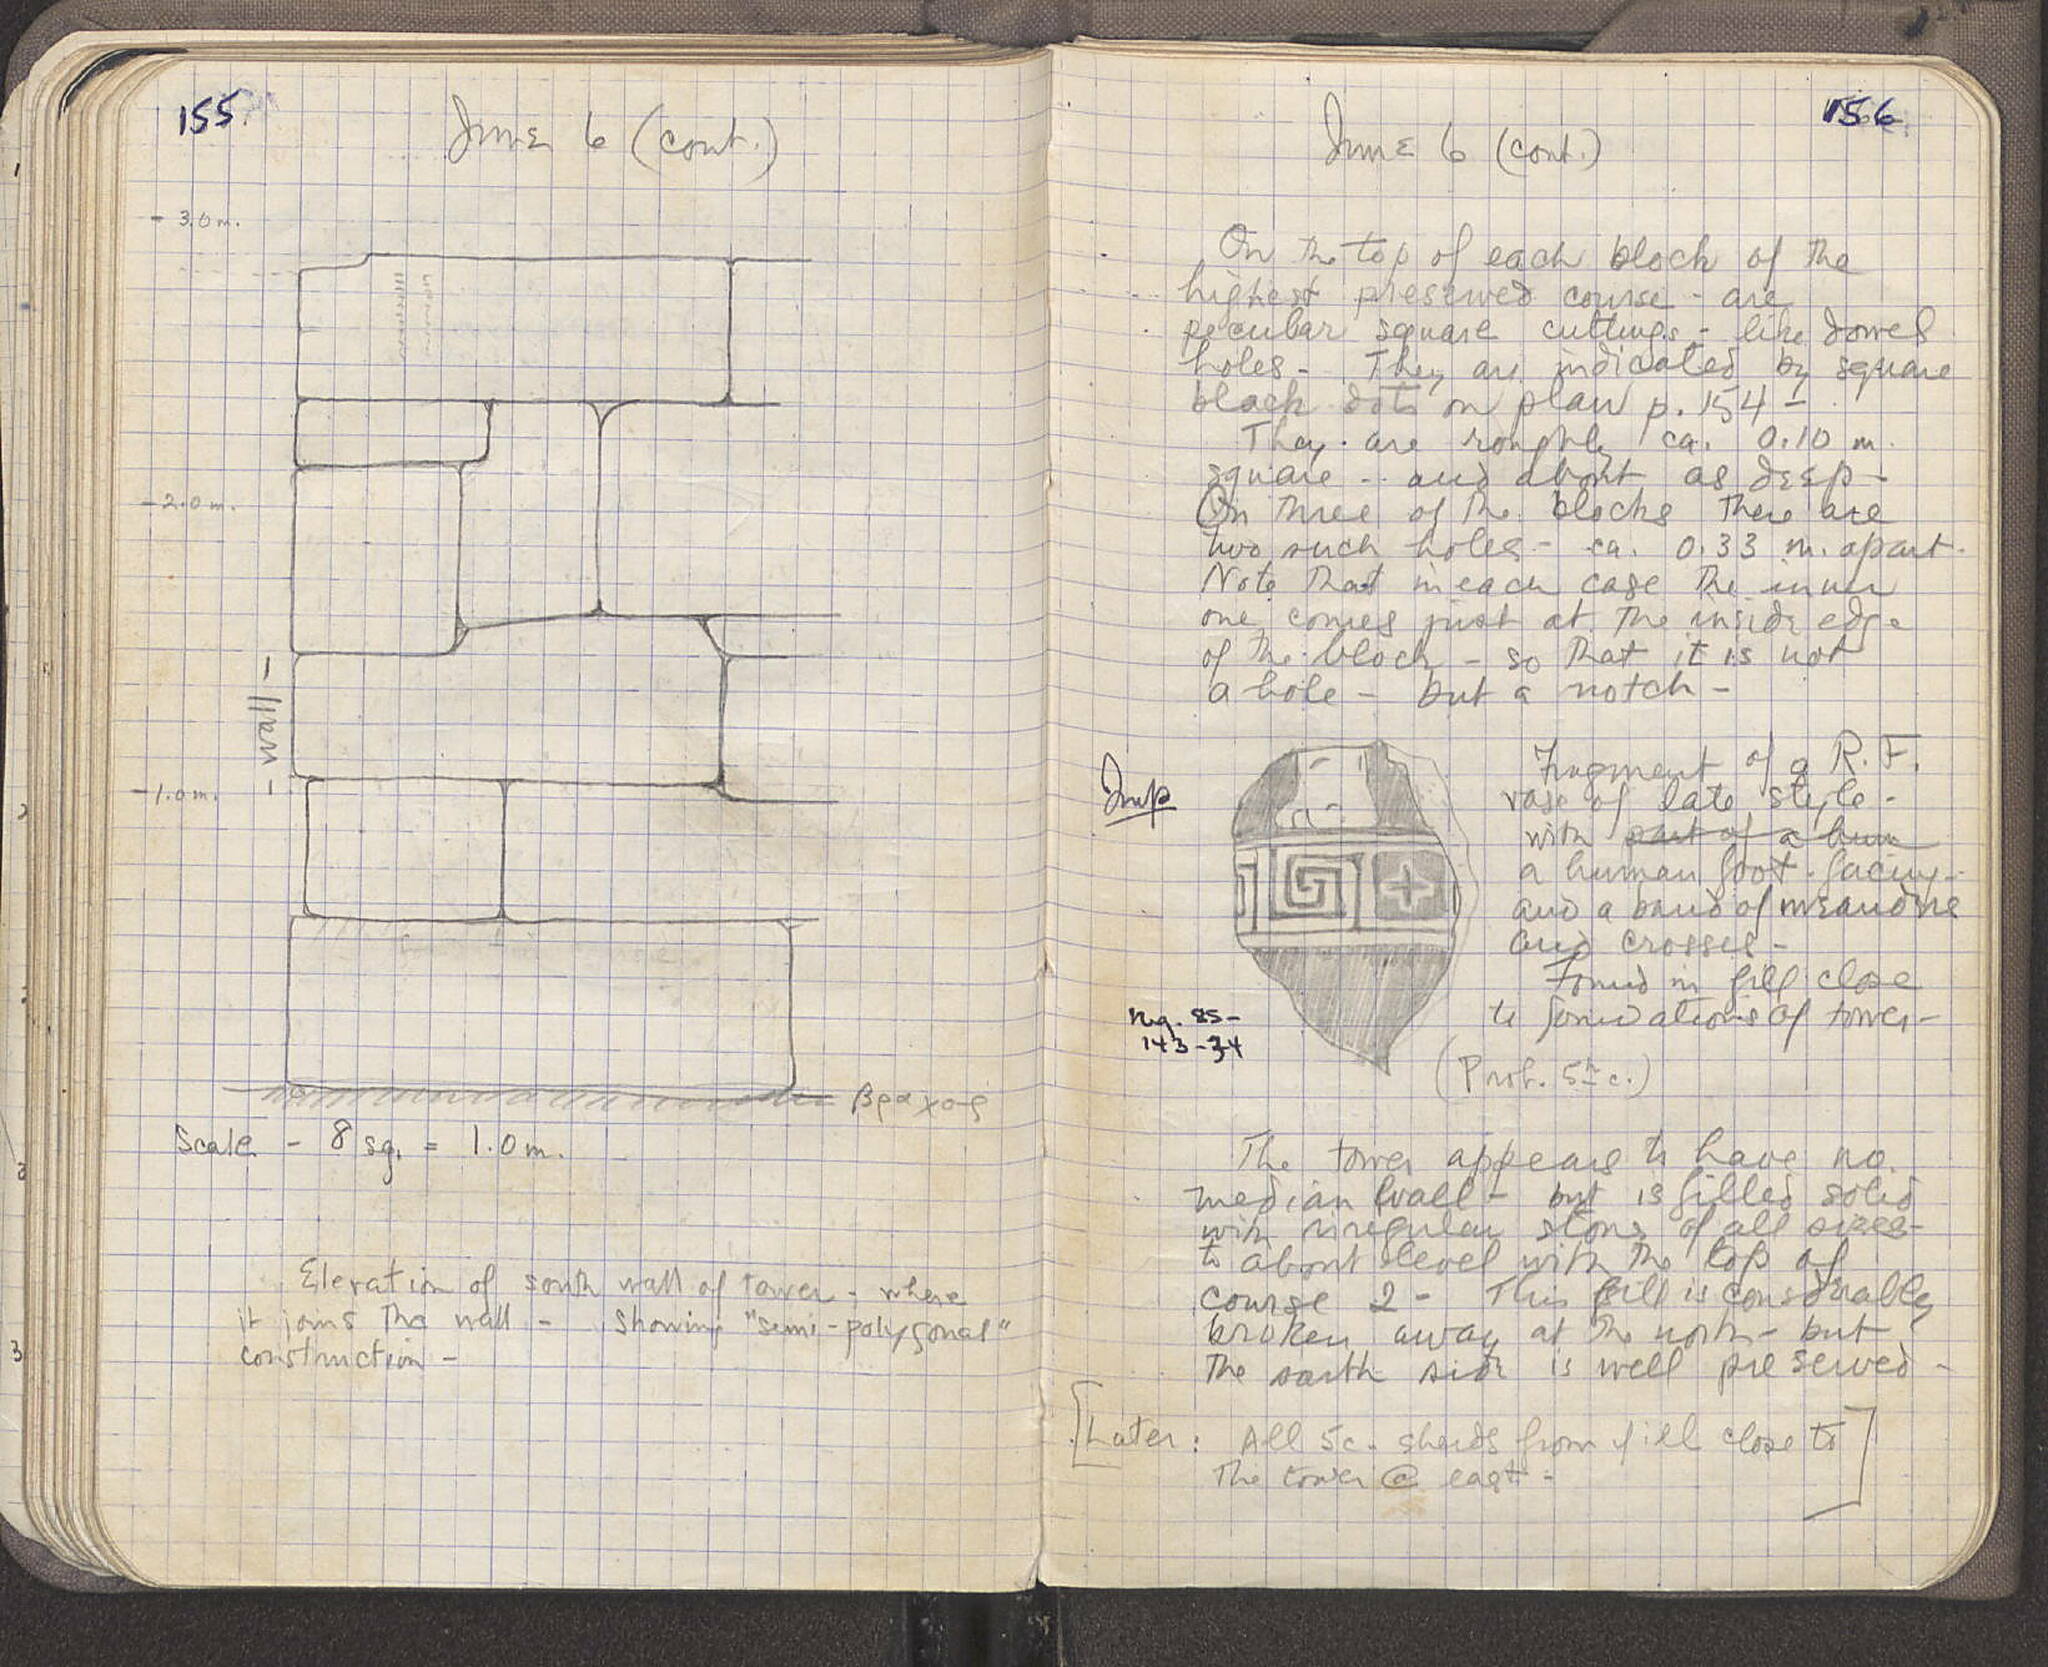 155.
June 6 (cont.)
- 3.0 m.
- 2.0 m.
- wall -
- 1.0 m.
βραχος
Scale - 8 sq. = 1.0 m.
Elevation of south wall of tower - where
it joins the wall - showing "semi-polygonal"
construction -
156
June 6 (cont.)
On the top of each block of the
highest preserved course - are
peculiar square cuttings - like dowel
holes - They are indicated by square
black dots on plan p. 154 -
They are roughly ca. 0.10 m.
square - and about as deep -
On three of the blocks there are
two such holes - ca. 0.33 m. apart -
Note that in each case the inner
one comes just at the inside edge
of the block - so that it is not
a hole - but a notch -
Imp
Fragment of a R.F.
vase of late style -
with part of a hum
a human foot - facing -
and a band of meandre
and crosses -
Found in fill close
to foundations of tower -
Neg. 85-
143-34
(Prob. 5th c.)
The tower appears to have no
median wall - but is filled solid
with irregular stone of all sizes -
to about level with the top of
course 2 - This fill is considerably
broken away at the north - but
the south side is well preserved -
[Later: All 5c. sherds from fill close to
the tower @ east -]